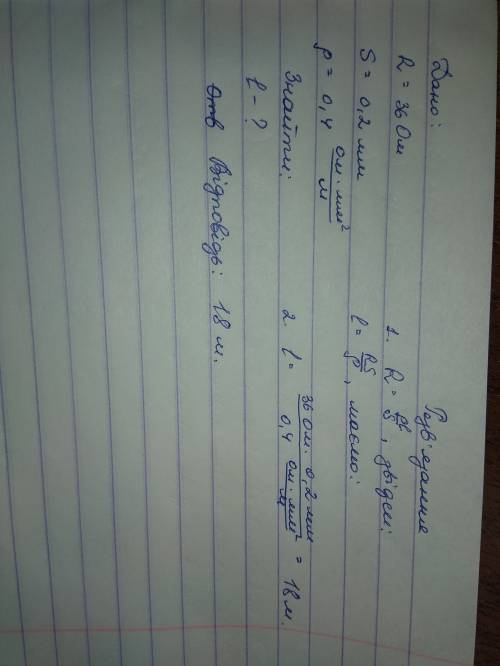 Дано:
R = 36 Ом
S = 0,2 мм
ρ = 0,4 ом · мм² / м
Знайти:
l - ?
Розв'язання
1. R = ρl/S, звідси:
l = RS/ρ, маємо:
2. l = 36 Ом · 0,2 мм / 0,4 ом · мм² / м = 18 м.
Відповідь: 18 м.